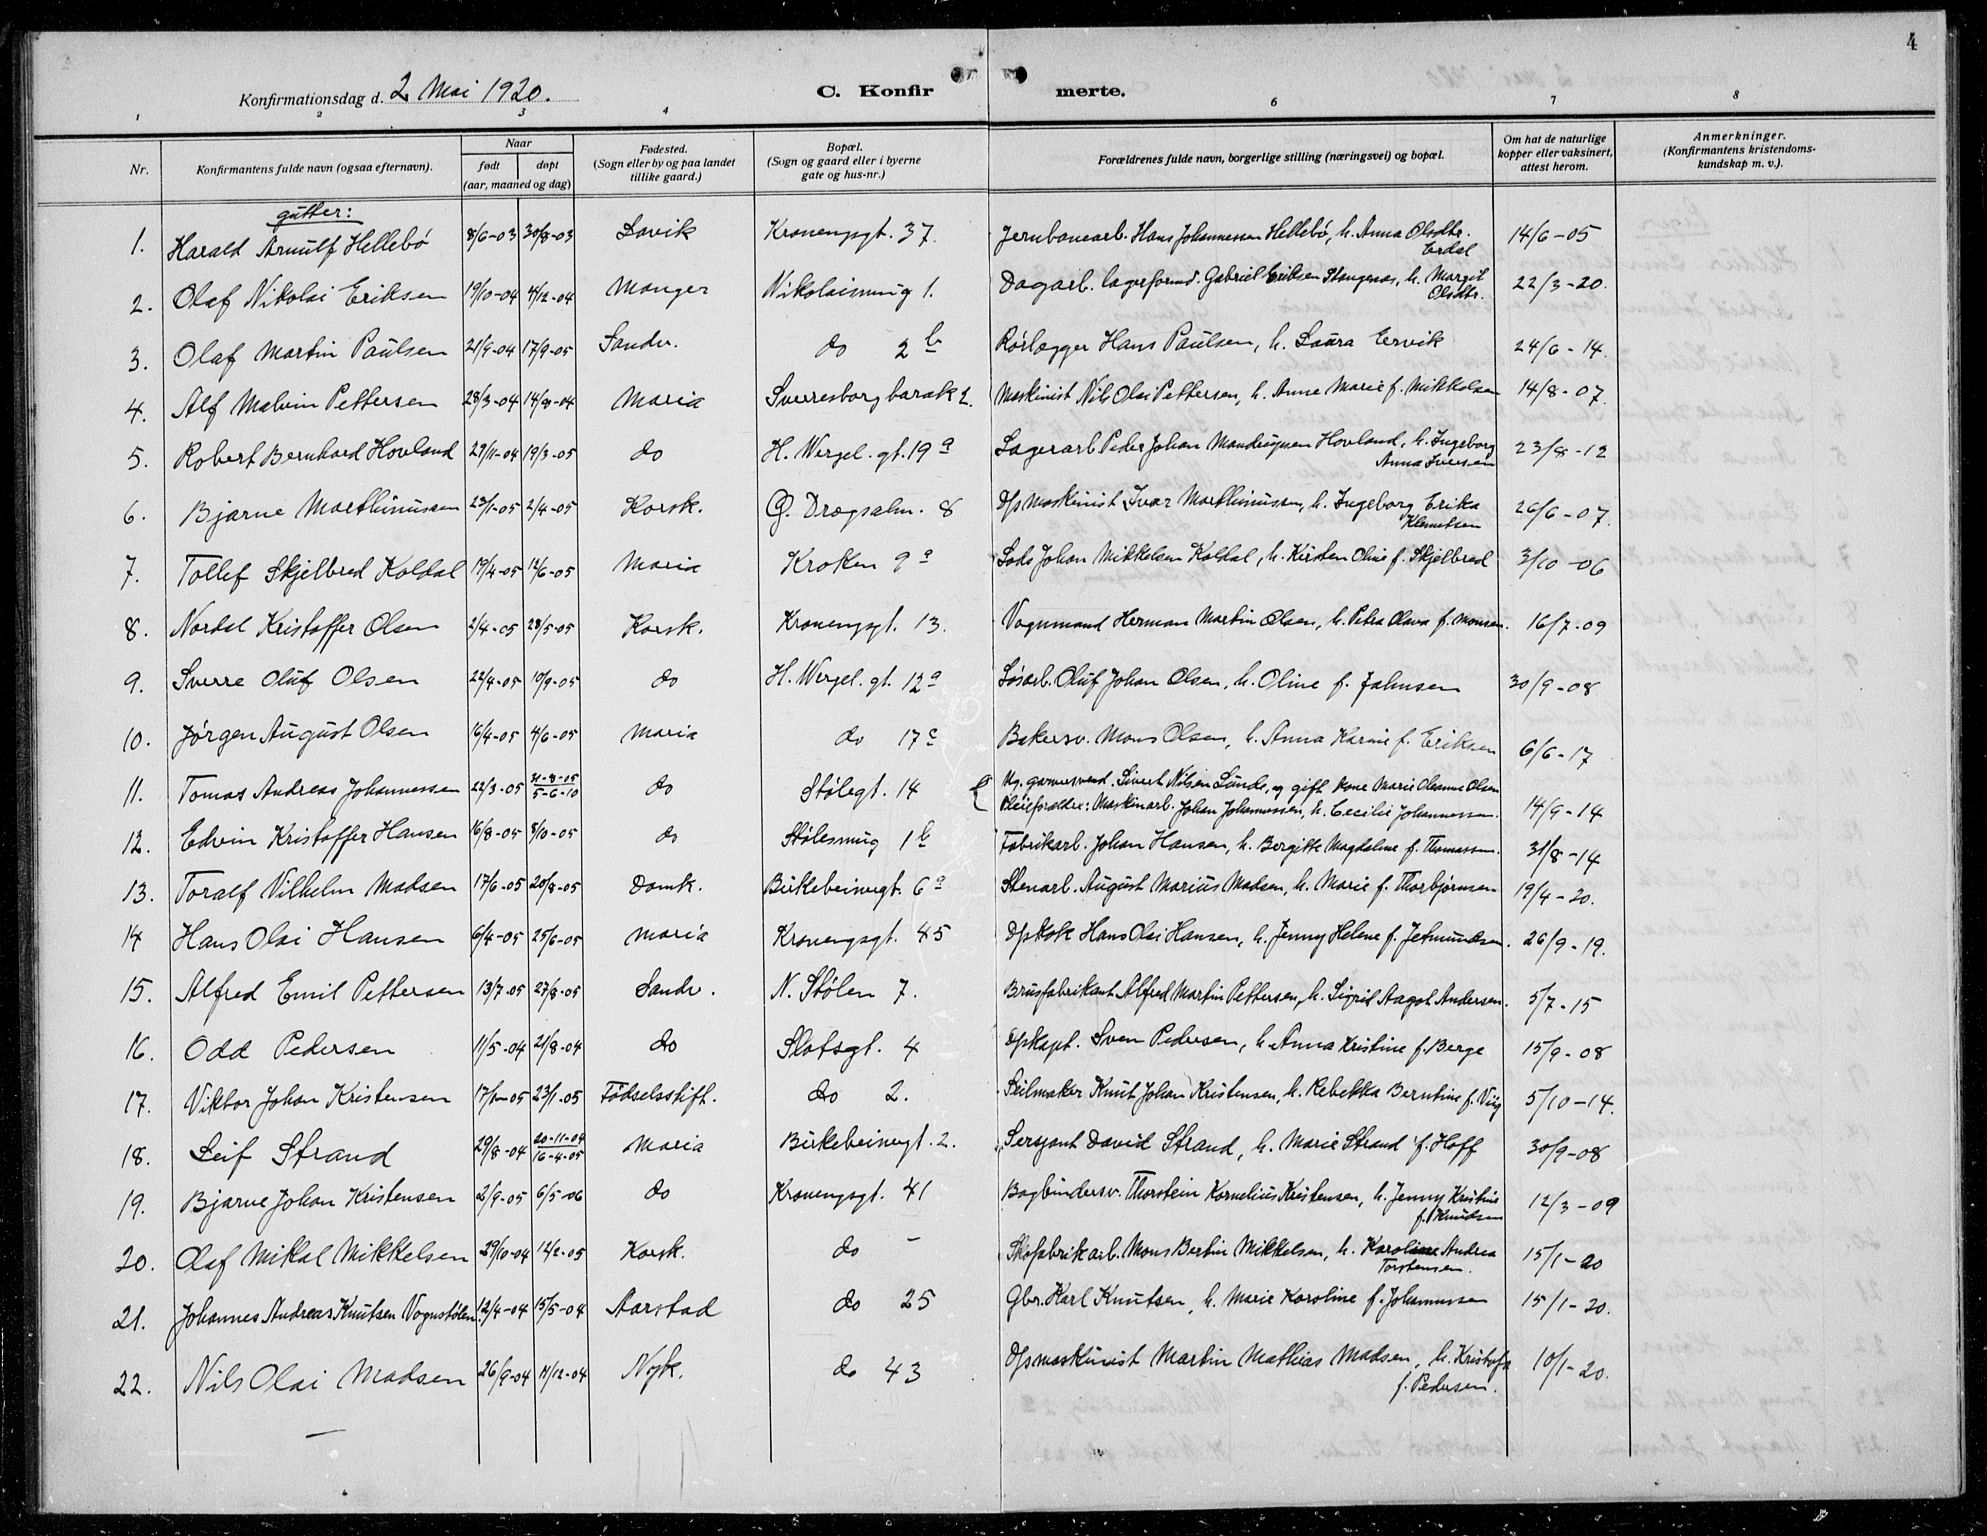 4
Konfirmationsdag d. 2 Mai 1920. C. Konfir merte.
1 2 3 4 6 7 8
Nr. Konfirmantens fulde navn (ogsaa efternavn). Naar født døpt (aar, maaned og dag) Fødested. (Sogn eller by og paa landet tillike gaard.) Bopæl. (Sogn og gaard eller i byerne gate og hus-nr.) Forældrenes fulde navn, borgerlige stilling (næringsvei) og bopæl. Om hat de naturlige kopper eller vaksinert, attest herom. Anmerkninger. (Konfirmantens kristendomskundskap m. v.).
gutter:
1. Harald Arnulf Hellebö 8/6-03 30/8-03 Lavik Kronengsgt. 37. Jernbanearb. Hans Johannessen Hellebö, h. Anna Olsdtr. Erdal 14/6-05
2. Olaf Nikolai Eriksen 19/10-04 4/12-04 Manger Nikolaismug 1. Dagarb. lagerformd. Gabriel Eriksen Stangenæs, h. Margit Olsdtr. 22/3-20.
3. Olaf Martin Paulsen 21/9-04 17/9-05 Sandv. do 2 b Rörlægger Hans Paulsen, h. Laura Ervik 24/6-14.
4. Alf Malvin Pettersen 28/3-04 14/8-04 Maria Sverresborg barak 2. Maskinist Nils Olai Pettersen, h. Anne Marie f. Mikkelsen 14/8-07.
5. Robert Bernhard Hovland 27/11-04 19/3-05 do H. Wergel. gt. 19 a Lagerarb. Peder Johan Hovland, h. Ingeborg Anna Iversen 23/8-12
6. Bjarne Marthinussen 23/1-05 2/4-05 Korsk. Ö. Drægsalm. 8 Dpmaskinist Ivar Marthinussen, h. Ingeborg Erika Klemetsen 26/6-07.
7. Tollef Skjelbred Koldal 17/4-05 12/6-05 Maria Kroken 9 a Lods Johan Mikkelsen Koldal, h. Kirsten Oline f. Skjelbred 3/10-06
8. Nordal Kristoffer Olsen 2/4-05 28/5-05 Korsk. Kronengsgt. 13. Vognmand Herman Martin Olsen, h. Petra Olava f. Monsen. 16/7-09
9. Sverre Oluf Olsen 22/4-05 10/9-05 do H. Wergel. gt. 12 a Lösarb. Oluf Johan Olsen, h. Oline f. Jahnsen 30/9-08
10. Jörgen August Olsen 16/4-05 4/6-05 Maria do 17 c Bakersv. Mons Olsen, h. Anna Karine f. Eriksen 6/6-17
11. Tomas Andreas Johannessen 22/3-05 5-6-10 do Stölegt. 14 Ug. garversvend. Sivert Nilsen Lunde, og gift Kone Marie Oleanne Olsen
Pleieforældre: Maskinarb. Johan Johannessen, h. Cecilie Johannessen. 14/9-14
12. Edvin Kristoffer Hansen 16/8-05 8/10-05 do Stölesmug 1 b Fabrikarb. Johan Hansen, h. Bergitte Magdalene f. Thomassen. 31/8-14
13. Toralf Vilhelm Madsen 17/6-05 20/8-05 Domk. Birkebeinergt. 6 a Stenarb. August Marius Madsen, h. Marie f. Thorbjørnsen 19/4-20.
14 Hans Olai Hansen 6/4-05 25/6-05 Maria Kronengsgt. 45 Dpkok Hans Olai Hansen, h. Jenny Helene f. Jetmundsen. 26/9-19.
15. Alfred Emil Pettersen 13/7-05 27/8-05 Sandv. N. Stölen 7. Brusfabrikant Alfred Martin Pettersen, h. Sigrid Aagot Andersen. 5/7-15
16. Odd Pedersen 11/5-04 21/8-04 do Slotsgt. 4 Dpkapt. Sven Pedersen, h. Anna Kristine f. Berge 15/9-08
17. Viktor Johan Kristensen 17/1-05 23/1-05 Födselsstift. do 2. Seilmaker Knut Johan Kristensen, h. Rebekka Berntine f. Viig 5/10-14.
18. Leif Strand 29/8-04 20-11-04 16-4-05 Maria Birkebeinergt. 2. Sersjant David Strand, h. Marie Strand f. Hoff 30/9-08
19. Bjarne Johan Kristensen 2/9-05 6/5-06 do Kronengsgt. 41 Bogbindersv. Thorstein Kornelius Kristensen, h. Jenny Kristine f. Knudsen 12/3-09
20. Olaf Mikal Mikkelsen 29/10-04 12/2-05 Korsk. do - Skofabrikarb. Mons Bertin Mikkelsen, h. Karoline Andrea Torstensen. 15/1-20
21. Johannes Andreas Knutsen Vognstölen 12/4-04 15/5-04 Aarstad do 25 Gbr. Karl Knutsen, h. Marie Karoline f. Johannessen 15/1-20.
22. Nils Olai Madsen 26/9-04 11/12-04 Nyk. do 43 Dpsmaskinist Martin Mathias Madsen, h. Kristofa f. Pedersen. 10/1-20.